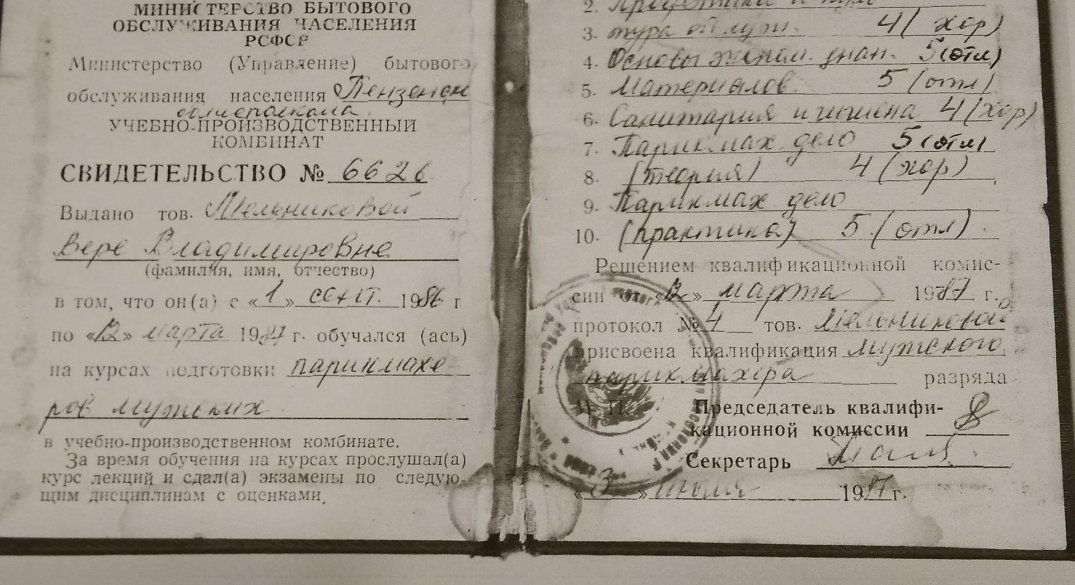 МИНИСТЕРСТВО БЫТОВОГО
ОБСЛУЖИВАНИЯ НАСЕЛЕНИЯ
РСФСР
Министерство (Управление) бытового
обслуживания населения Пензенск
УЧЕБНО-ПРОИЗВОДСТВЕННЫЙ
КОМБИНАТ
СВИДЕТЕЛЬСТВО № 6626
Выдано тов. Мельниковой
Вере Владимировне
(фамилия, имя, отчество)
в том, что он(а) с «1» сент. 1986 г
по «12» марта 1987 г. обучался (ась)
на курсах подготовки парикмахе
ров мужских
в учебно-производственном комбинате.
За время обучения на курсах прослушал(а)
курс лекций и сдал(а) экзамены по следую
щим дисциплинам с оценками.
2.
3. тура 4 (хор)
4. Основы знан. 5 (отл)
5. Материалов. 5 (отл)
6. Санитария и гигиена 4 (хор)
7. Парикмах. дело 5 (отл)
8. (теория) 4 (хор)
9. Парикмах дело
10. (практика) 5 (отл)
Решением квалификационной комис-
сии «12» марта 1987 г.
протокол № 4 тов. Мельниковой
присвоена квалификация мужского
парикмахера разряда
М. П.
Председатель квалифи-
кационной комиссии
Секретарь
«3» июля 1987 г.